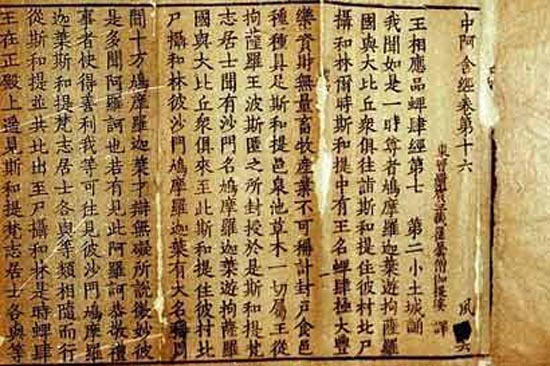 中阿含經卷第十六 風 六
東晉罽賓三藏瞿曇僧伽提婆 譯
王相應品蜱肆經第七 第二小土城誦
我聞如是一時尊者鳩摩羅迦葉遊拘薩羅
國與大比丘衆俱往詣斯和提住彼村北尸
攝和林爾時斯和提中有王名蜱肆極大豐
樂資財無量畜牧産業不可稱計封戶食邑
種種具足斯和提邑泉池草木一切屬王從
拘薩羅王波斯匿之所封授於是斯和提梵
志居士聞有沙門名鳩摩羅迦葉遊拘薩羅
國與大比丘衆俱來至此斯和提住彼村北
尸攝和林彼沙門鳩摩羅迦葉有大名稱周
聞十方鳩摩羅迦葉才辯無礙所說微妙彼
是多聞阿羅訶也若有見此阿羅訶恭敬禮
事者快得善利我等可往見彼沙門鳩摩羅
迦葉斯和提梵志居士各與等類相隨而行
從斯和提並共北出至尸攝和林是時蜱肆
王在正殿上遥見斯和提梵志居士各與等